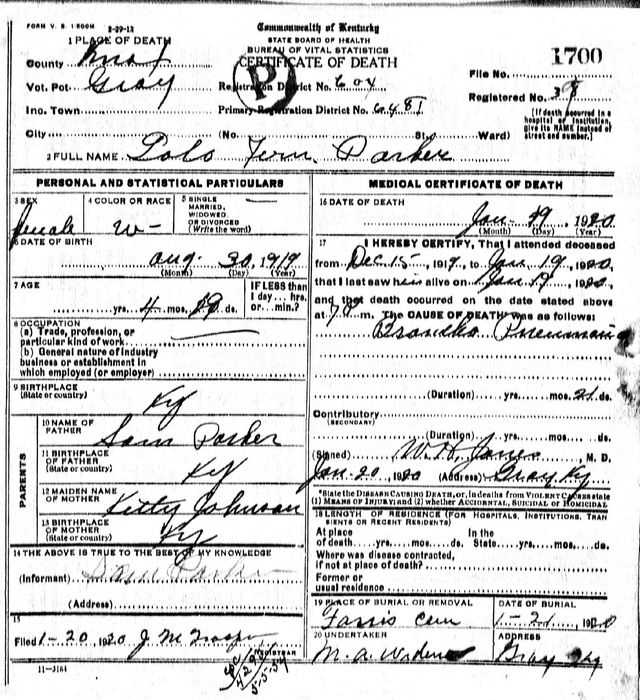 FORM V. S. 1-ROOM 2-29-12
Commonwealth of Kentucky
STATE BOARD OF HEALTH
BUREAU OF VITAL STATISTICS
CERTIFICATE OF DEATH
1 PLACE OF DEATH
County Knox
Vot. Pct. Gray
Registration District No. 604
Ino. Town
Primary Registration District No. 6481
City (No. St. Ward)
1700
File No.
Registered No. 39
[If death occurred in a
hospital or institution,
give its NAME instead of
street and number.]
2 FULL NAME Lolo Fern Parker
P
PERSONAL AND STATISTICAL PARTICULARS
3 SEX
female
4 COLOR OR RACE
W-
5 SINGLE
MARRIED,
WIDOWED
OR DIVORCED
(Write the word)
6 DATE OF BIRTH
Aug 30, 1919
(Month) (Day) (Year)
7 AGE
yrs. 4 mos. 19 ds.
IF LESS than
1 day... hrs.
or... min.?
8 OCCUPATION
(a) Trade, profession, or
particular kind of work
(b) General nature of industry
business or establishment in
which employed (or employer)
9 BIRTHPLACE
(State or country)
Ky
PARENTS
10 NAME OF
FATHER
Sam Parker
11 BIRTHPLACE
OF FATHER
(State or country)
Ky
12 MAIDEN NAME
OF MOTHER
Kitty Johnson
13 BIRTHPLACE
OF MOTHER
(State or country)
Ky
14 THE ABOVE IS TRUE TO THE BEST OF MY KNOWLEDGE
(Informant) Sam Parker
(Address)
15
Filed 1-20, 1920
REGISTRAR
11-3184
MEDICAL CERTIFICATE OF DEATH
16 DATE OF DEATH
Jan 19 1920
(Month) (Day) (Year)
17 I HEREBY CERTIFY, That I attended deceased
from Dec 15-, 1919, to Jan 19, 1920,
that I last saw h alive on Jan 19, 1920,
and that death occurred on the date stated above
at m. The CAUSE OF DEATH was as follows:
Broncho Pneumonia
(Duration) yrs. mos. 21 ds.
Contributory
(SECONDARY)
(Duration) yrs. mos. ds.
(Signed) W. H. Jones, M. D.
Jan-20 1920 (Address) Gray Ky
*State the DISEASE CAUSING DEATH, or, in deaths from VIOLENT CAUSES state
(1) MEANS OF INJURY; and (2) whether ACCIDENTAL, SUICIDAL or HOMICIDAL
18 LENGTH OF RESIDENCE (FOR HOSPITALS, INSTITUTIONS, TRAN
SIENTS OR RECENT RESIDENTS)
At place of death yrs. mos. ds. In the State yrs. mos. ds.
Where was disease contracted,
if not at place of death?
Former or
usual residence
19 PLACE OF BURIAL OR REMOVAL
Farris Cem
DATE OF BURIAL
1-2, 1920
20 UNDERTAKER
M. A.
ADDRESS
Gray Ky